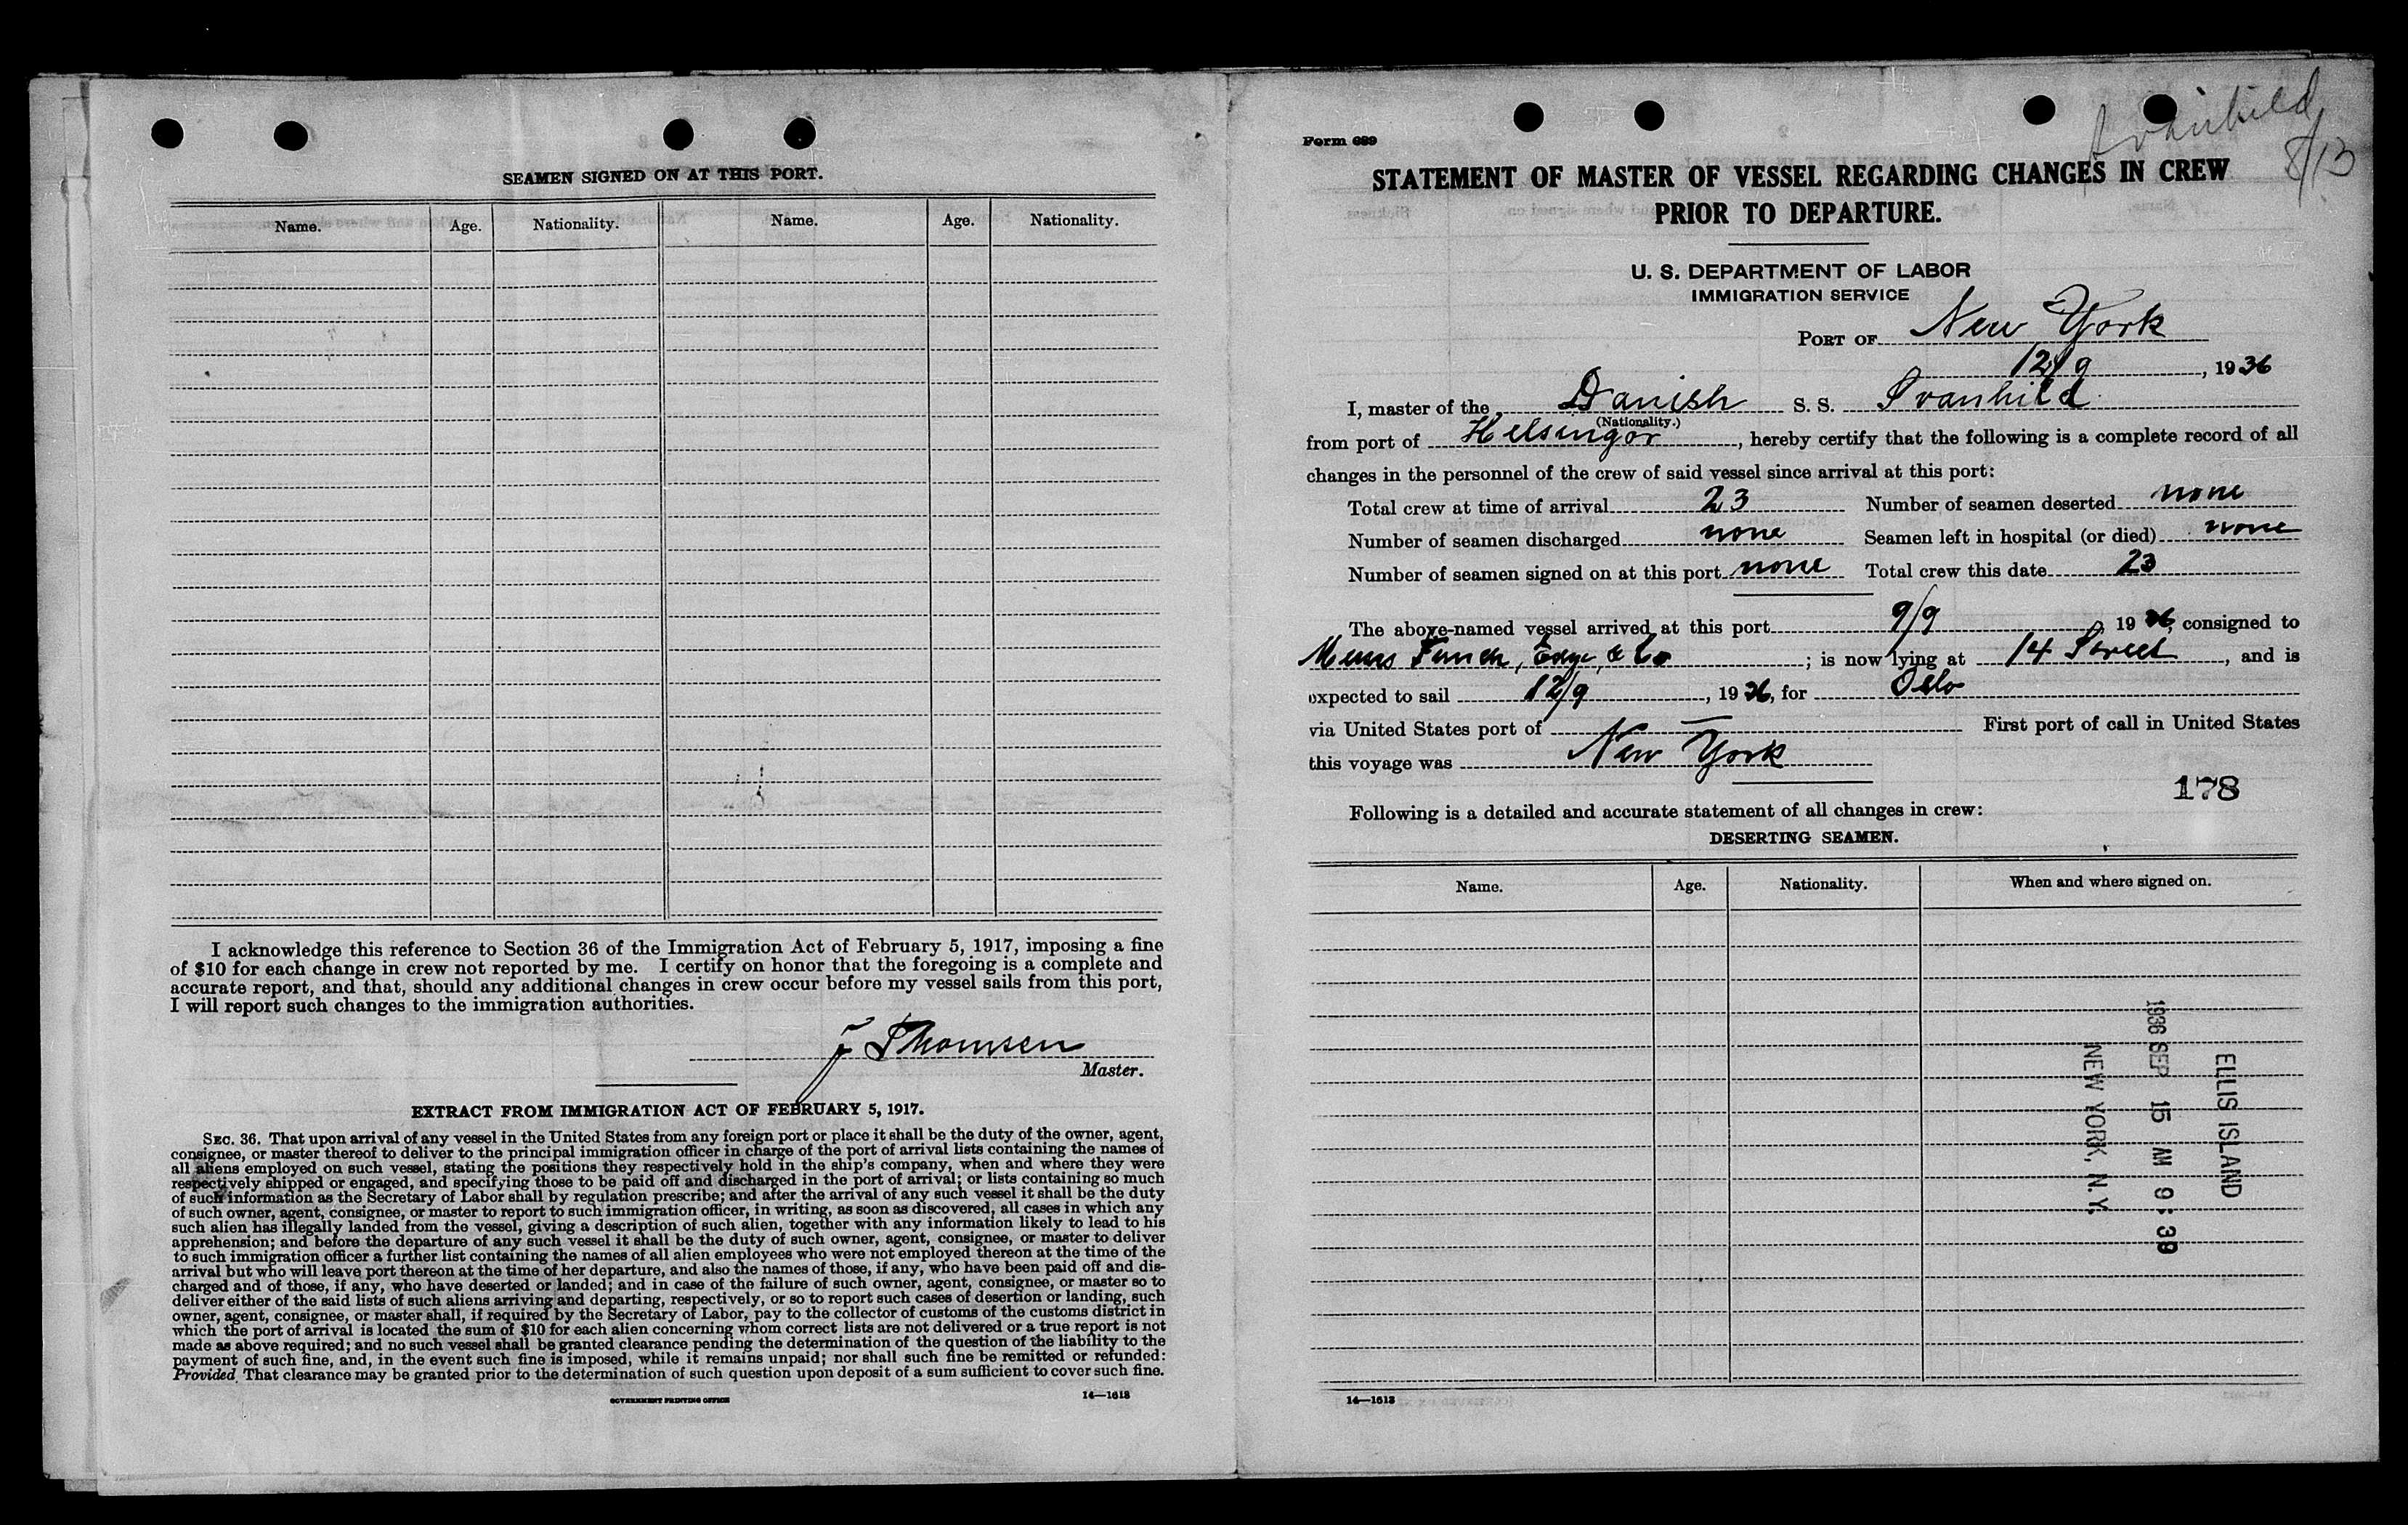 SEAMEN SIGNED ON AT THIS PORT.
Name. Age. Nationality. Name. Age. Nationality.
I acknowledge this reference to Section 36 of the Immigration Act of February 5, 1917, imposing a fine
of $10 for each change in crew not reported by me. I certify on honor that the foregoing is a complete and
accurate report, and that, should any additional changes in crew occur before my vessel sails from this port,
I will report such changes to the immigration authorities.
J Thomsen
Master.
EXTRACT FROM IMMIGRATION ACT OF FEBRUARY 5, 1917.
SEC. 36. That upon arrival of any vessel in the United States from any foreign port or place it shall be the duty of the owner, agent,
consignee, or master thereof to deliver to the principal immigration officer in charge of the port of arrival lists containing the names of
all aliens employed on such vessel, stating the positions they respectively hold in the ship's company, when and where they were
respectively shipped or engaged, and specifying those to be paid off and discharged in the port of arrival; or lists containing so much
of such information as the Secretary of Labor shall by regulation prescribe; and after the arrival of any such vessel it shall be the duty
of such owner, agent, consignee, or master to report to such immigration officer, in writing, as soon as discovered, all cases in which any
such alien has illegally landed from the vessel, giving a description of such alien, together with any information likely to lead to his
apprehension; and before the departure of any such vessel it shall be the duty of such owner, agent, consignee, or master to deliver
to such immigration officer a further list containing the names of all alien employees who were not employed thereon at the time of the
arrival but who will leave port thereon at the time of her departure, and also the names of those, if any, who have been paid off and dis-
charged and of those, if any, who have deserted or landed; and in case of the failure of such owner, agent, consignee, or master so to
deliver either of the said lists of such aliens arriving and departing, respectively, or so to report such cases of desertion or landing, such
owner, agent, consignee, or master shall, if required by the Secretary of Labor, pay to the collector of customs of the customs district in
which the port of arrival is located the sum of $10 for each alien concerning whom correct lists are not delivered or a true report is not
made as above required; and no such vessel shall be granted clearance pending the determination of the question of the liability to the
payment of such fine, and, in the event such fine is imposed, while it remains unpaid; nor shall such fine be remitted or refunded:
Provided, That clearance may be granted prior to the determination of such question upon deposit of a sum sufficient to cover such fine.
GOVERNMENT PRINTING OFFICE 14—1613
Svanhild
8/13
Form 689
STATEMENT OF MASTER OF VESSEL REGARDING CHANGES IN CREW
PRIOR TO DEPARTURE.
U. S. DEPARTMENT OF LABOR
IMMIGRATION SERVICE
PORT OF New York
12/9, 1936
I, master of the Danish S. S. Svanhild
(Nationality.)
from port of Helsingør, hereby certify that the following is a complete record of all
changes in the personnel of the crew of said vessel since arrival at this port:
Total crew at time of arrival 23 Number of seamen deserted none
Number of seamen discharged none Seamen left in hospital (or died) none
Number of seamen signed on at this port none Total crew this date 23
The above-named vessel arrived at this port 9/9 1936, consigned to
Messrs Funch, Edye, & Co ; is now lying at 14 Street, and is
expected to sail 12/9, 1936, for Oslo
via United States port of — First port of call in United States
this voyage was New York
178
Following is a detailed and accurate statement of all changes in crew:
DESERTING SEAMEN.
Name. Age. Nationality. When and where signed on.
ELLIS ISLAND
1936 SEP 15 AM 9:39
NEW YORK, N.Y.
14—1613